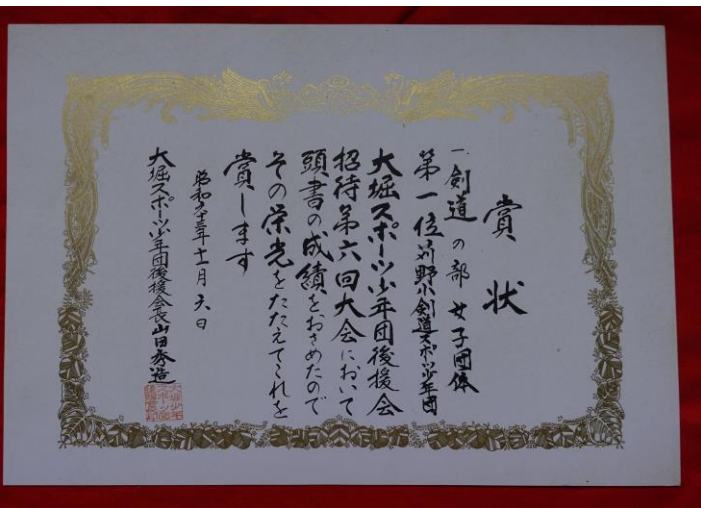 賞状
一、剣道の部 女子団体
第一位 苅野小剣道スポーツ少年団
大堀スポーツ少年団後援会
招待第六回大会において
頭書の成績をおさめたので
その栄光をたたえてこれを
賞します
昭和六十三年十一月六日
大堀スポーツ少年団後援会長山田秀造